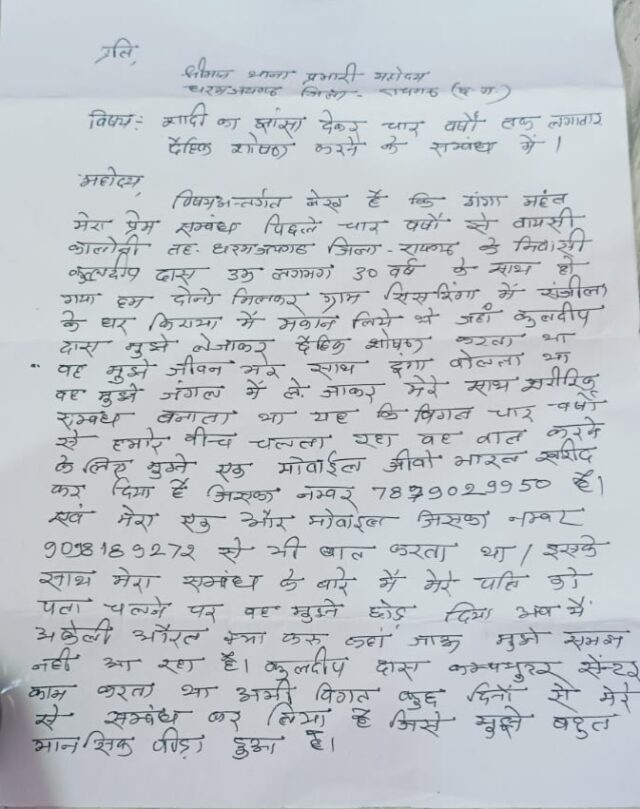 प्रति,
श्रीमान थाना प्रभारी महोदय
धरमजयगढ़ जिला - रायगढ़ (छ.ग.)
विषय:- शादी का झांसा देकर चार वर्षों तक लगातार
दैहिक शोषण करने के सम्बंध में।
महोदय,
विषयअन्तर्गत लेख है कि गंगा महंत
मेरा प्रेम सम्बंध पिछले चार वर्षों से वायसी
कालोनी तह. धरमजयगढ़ जिला - रायगढ़ के निवासी
कुलदीप दास उम्र लगभग 30 वर्ष के साथ हो
गया हम दोनो मिलकर ग्राम सिसरिंगा में
के घर किराया में मकान लिये थे जहाँ कुलदीप
दास मुझे लेजाकर दैहिक शोषण करता था
वह मुझे जीवन भर साथ दूंगा बोलता था
वह मुझे जंगल में ले जाकर मेरे साथ शारीरिक
सम्बंध बनाता था यह कि विगत चार वर्षों
से हमारे बीच चलता रहा वह बात करने
के लिए मुझे एक मोबाईल जीवो भारत खरीद
कर दिया है जिसका नम्बर 7879029950 है।
एवं मेरा एक और मोबाईल जिसका नम्बर
9098189272 से भी बात करता था / इसके
साथ मेरा सम्बंध के बारे में मेरे पति को
पता चलने पर वह मुझे छोड़ दिया अब मैं
अकेली औरत क्या करू कहां जाऊ मुझे समझ
नही आ रहा है। कुलदीप दास कम्प्युटर सेंटर
काम करता था अभी विगत कुछ दिनों से मेरे
से सम्बंध कर लिया है जिसे मुझे बहुत
मानसिक पीड़ा हुआ है।